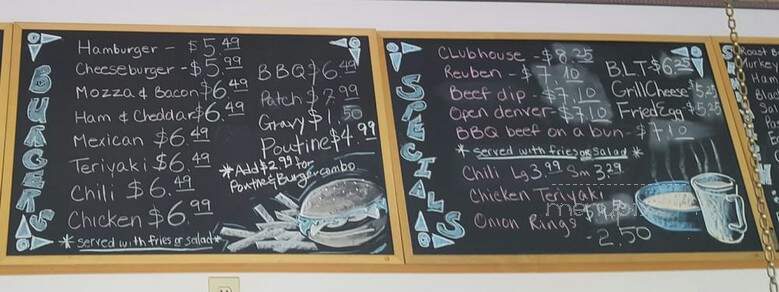 BURGERS
Hamburger - $5.49
Cheeseburger - $5.99
Mozza & Bacon $6.49
Ham & Cheddar $6.49
Mexican $6.49
Teriyaki $6.49
Chili $6.49
Chicken $6.99
* served with fries or salad *
BBQ $6.49
Patch $7.99
Gravy $1.50
Poutine $4.99
* Add $2.99 for
Poutine & Burger combo
SPECIALS
Clubhouse - $8.25
Reuben - $7.10
Beef dip - $7.10
Open denver - $7.10
BBQ beef on a bun - $7.10
* served with fries or salad *
Chili Lg 3.99 Sm 3.29
Chicken Teriyaki
Onion Rings - 2.50
BLT $6.25
Grill Cheese $5.25
Fried Egg $5.25
Roast B
Turkey
Ham